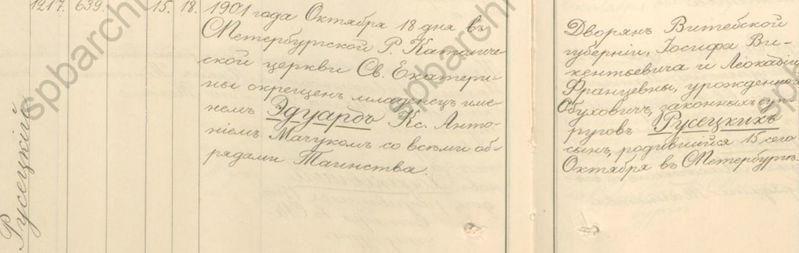 1217. 639. 15. 18. 1901 года Октября 18 дня въ
СПетербургской Р. Католиче-
ской церкви Св. Екатери-
ны окрещенъ младенецъ име-
немъ Эдуардъ Кс. Анто-
ніемъ Мачукомъ со всѣми об-
рядами Таинства.
Дворянъ Витебской
губерніи, Іосифа Ви-
кентьевича и Леокадіи
Францевны, урожденной
Обуховичъ, законныхъ су-
пруговъ Русецкихъ
сынъ, родившійся 15 сего
Октября въ СПетербургѣ.
Русецкій
spbarchives
spbarchives
spbarch